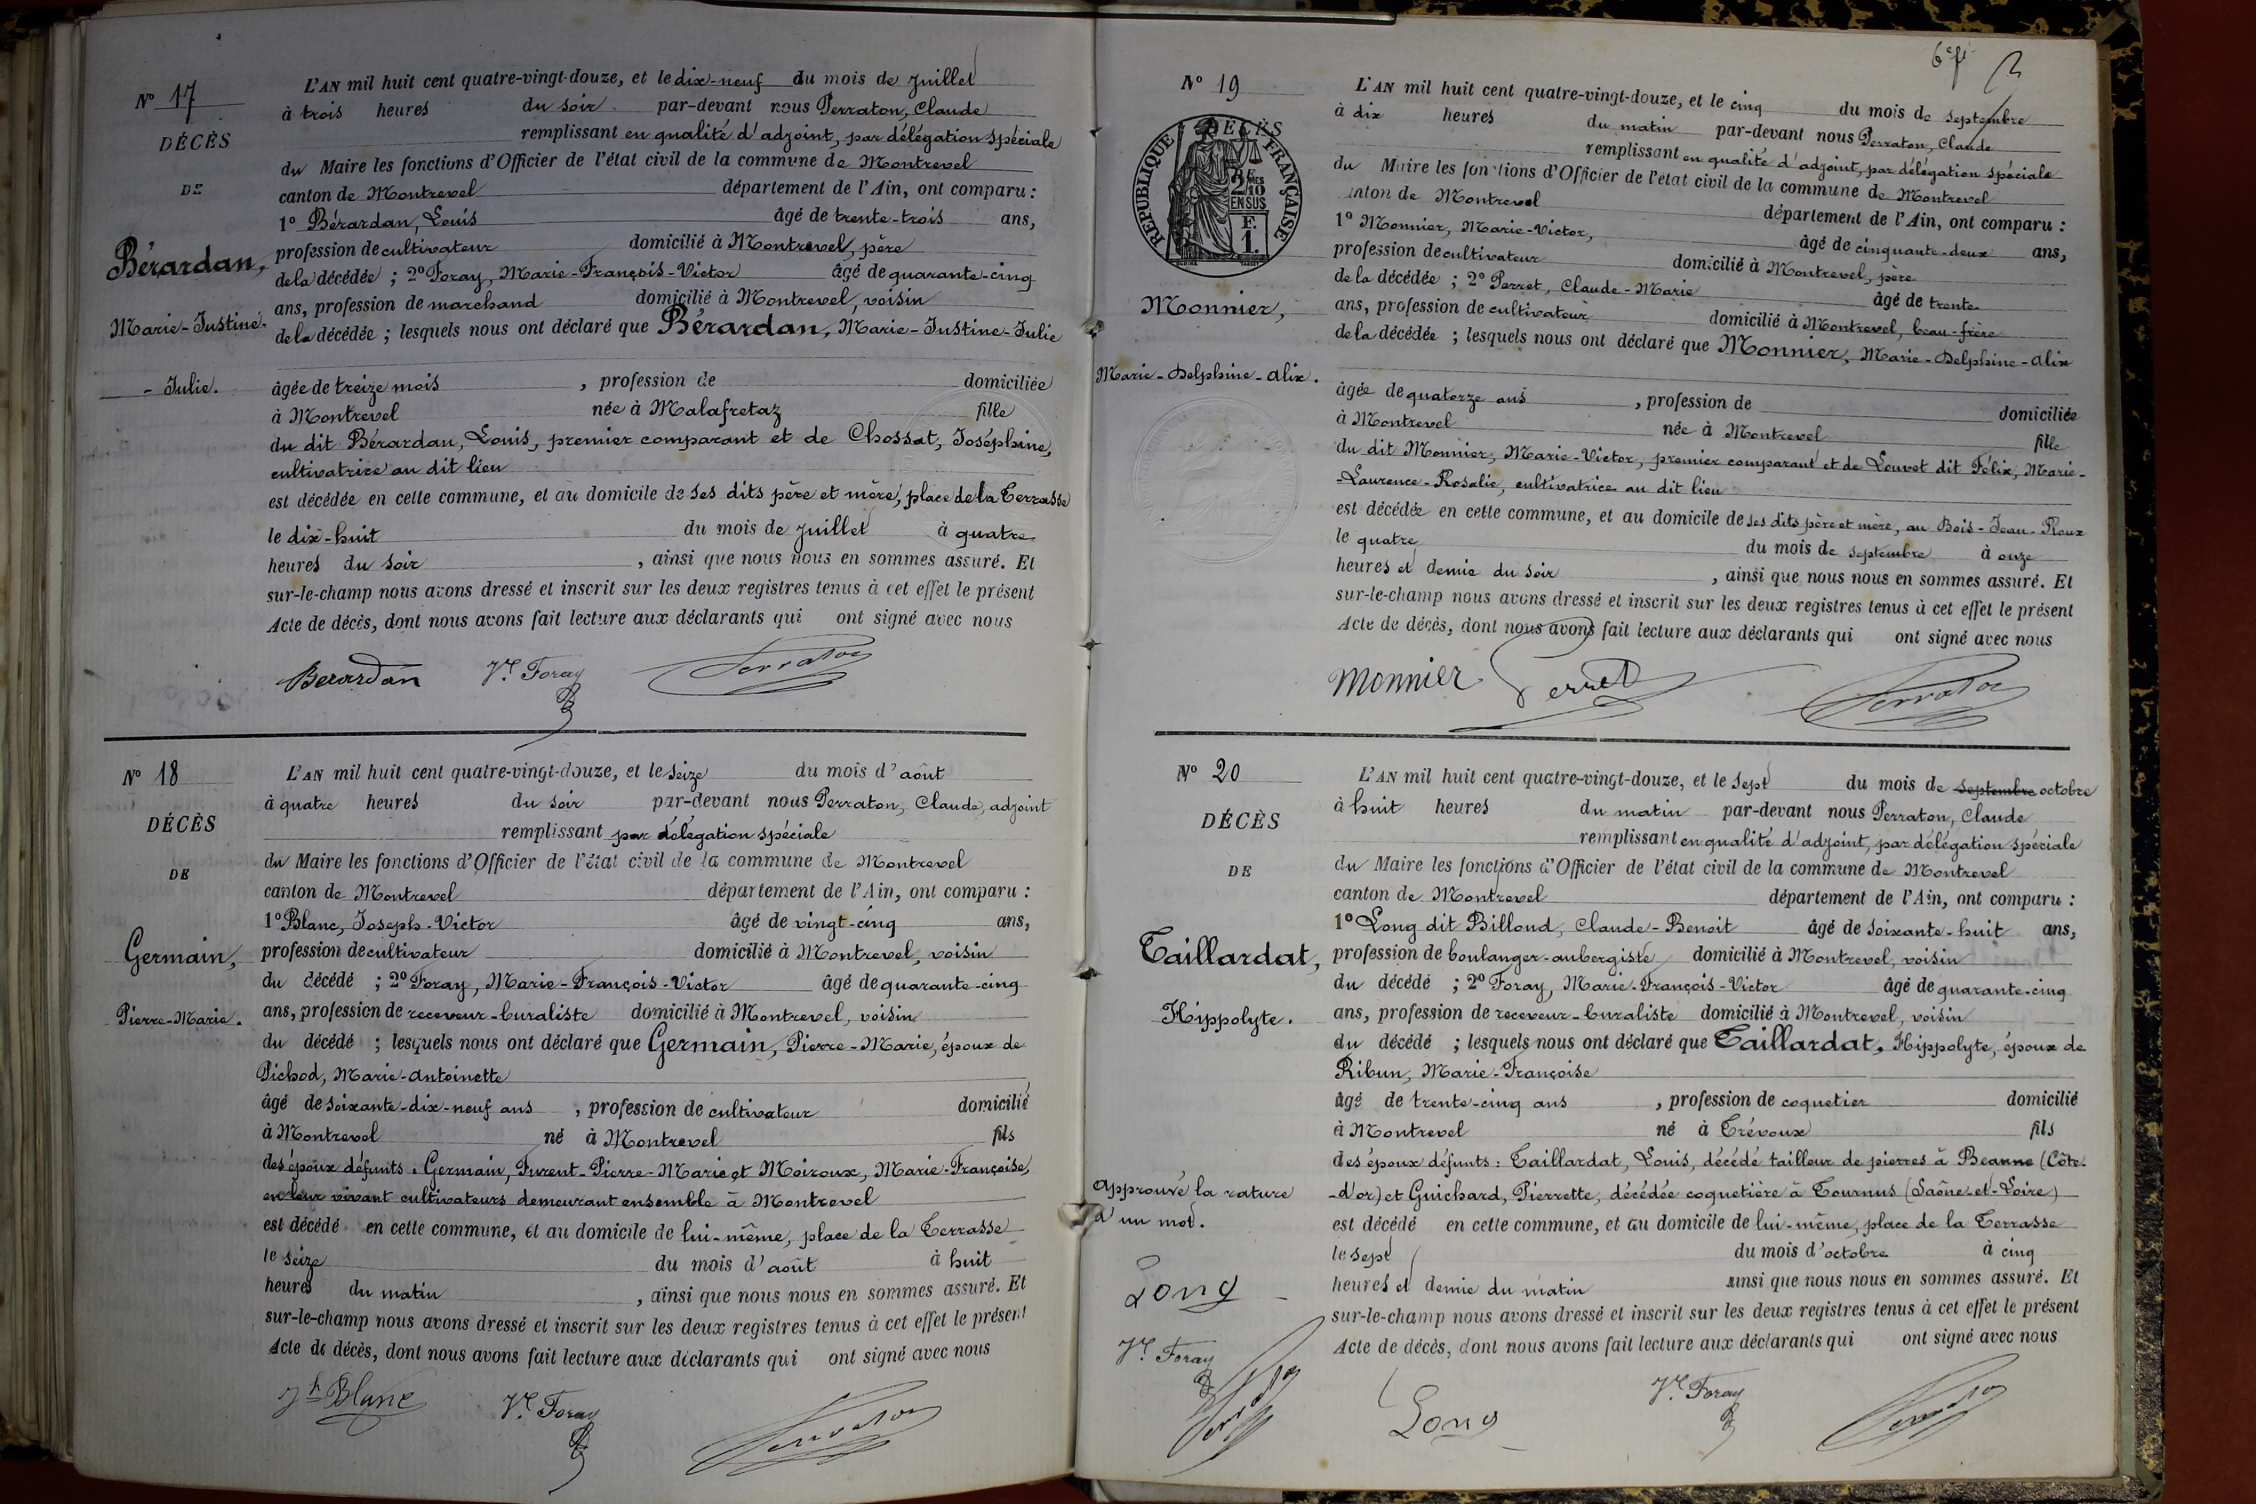 N° 17
DÉCÈS
DE
Bérardan,
Marie-Justine-
- Julie.
L'AN mil huit cent quatre-vingt-douze, et le dix-neuf du mois de juillet
à trois heures du soir par-devant nous Perraton, Claude
remplissant en qualité d'adjoint, par délégation spéciale
du Maire les fonctions d'Officier de l'état civil de la commune de Montrevel
canton de Montrevel département de l'Ain, ont comparu :
1° Bérardan, Louis âgé de trente-trois ans,
profession de cultivateur domicilié à Montrevel, père
de la décédée ; 2° Foray, Marie-François-Victor âgé de quarante-cinq
ans, profession de marchand domicilié à Montrevel, voisin
de la décédée ; lesquels nous ont déclaré que Bérardan, Marie-Justine-Julie
âgée de treize mois , profession de domiciliée
à Montrevel née à Malafretaz fille
du dit Bérardan, Louis, premier comparant et de Chossat, Joséphine,
cultivatrice au dit lieu
est décédée en cette commune, et au domicile de ses dits père et mère, place de la Terrasse
le dix-huit du mois de juillet à quatre
heures du soir , ainsi que nous nous en sommes assuré. Et
sur-le-champ nous avons dressé et inscrit sur les deux registres tenus à cet effet le présent
Acte de décès, dont nous avons fait lecture aux déclarants qui ont signé avec nous
Berardan Vr Foray Perraton
N° 18
DÉCÈS
DE
Germain,
Pierre-Marie.
L'AN mil huit cent quatre-vingt-douze, et le seize du mois d'août
à quatre heures du soir par-devant nous Perraton, Claude, adjoint
remplissant par délégation spéciale
du Maire les fonctions d'Officier de l'état civil de la commune de Montrevel
canton de Montrevel département de l'Ain, ont comparu :
1° Blanc, Joseph-Victor âgé de vingt-cinq ans,
profession de cultivateur domicilié à Montrevel, voisin
du décédé ; 2° Foray, Marie-François-Victor âgé de quarante-cinq
ans, profession de receveur-buraliste domicilié à Montrevel, voisin
du décédé ; lesquels nous ont déclaré que Germain, Pierre-Marie, époux de
Pichod, Marie-Antoinette
âgé de soixante-dix-neuf ans , profession de cultivateur domicilié
à Montrevel né à Montrevel fils
des époux défunts : Germain, Furent-Pierre-Marie et Moiroux, Marie-Françoise,
en leur vivant cultivateurs demeurant ensemble à Montrevel
est décédé en cette commune, et au domicile de lui-même, place de la Terrasse
le seize du mois d'août à huit
heures du matin , ainsi que nous nous en sommes assuré. Et
sur-le-champ nous avons dressé et inscrit sur les deux registres tenus à cet effet le présent
Acte de décès, dont nous avons fait lecture aux déclarants qui ont signé avec nous
Jh Blanc Vr Foray Perraton
N° 19
DÉCÈS
RÉPUBLIQUE FRANÇAISE
2 DMES 10
EN SUS
F.
1.
Monnier,
Marie-Delphine-Alix.
L'AN mil huit cent quatre-vingt-douze, et le cinq du mois de septembre
à dix heures du matin par-devant nous Perraton, Claude
remplissant en qualité d'adjoint, par délégation spéciale
du Maire les fonctions d'Officier de l'état civil de la commune de Montrevel
canton de Montrevel département de l'Ain, ont comparu :
1° Monnier, Marie-Victor, âgé de cinquante-deux ans,
profession de cultivateur domicilié à Montrevel, père
de la décédée ; 2° Perret, Claude-Marie âgé de trente
ans, profession de cultivateur domicilié à Montrevel, beau-frère
de la décédée ; lesquels nous ont déclaré que Monnier, Marie-Delphine-Alix
âgée de quatorze ans , profession de domiciliée
à Montrevel née à Montrevel fille
du dit Monnier, Marie-Victor, premier comparant et de Louvet dit Félix, Marie-
-Laurence-Rosalie, cultivatrice au dit lieu
est décédée en cette commune, et au domicile de ses dits père et mère, au Bois-Jean-Roux
le quatre du mois de septembre à onze
heures et demie du soir , ainsi que nous nous en sommes assuré. Et
sur-le-champ nous avons dressé et inscrit sur les deux registres tenus à cet effet le présent
Acte de décès, dont nous avons fait lecture aux déclarants qui ont signé avec nous
Monnier Perret Perraton
N° 20
DÉCÈS
DE
Taillardat,
Hippolyte.
L'AN mil huit cent quatre-vingt-douze, et le sept du mois de septembre octobre
à huit heures du matin par-devant nous Perraton, Claude
remplissant en qualité d'adjoint, par délégation spéciale
du Maire les fonctions d'Officier de l'état civil de la commune de Montrevel
canton de Montrevel département de l'Ain, ont comparu :
1° Long dit Billoud, Claude-Benoit âgé de soixante-huit ans,
profession de boulanger-aubergiste domicilié à Montrevel, voisin
du décédé ; 2° Foray, Marie-François-Victor âgé de quarante-cinq
ans, profession de receveur-buraliste domicilié à Montrevel, voisin
du décédé ; lesquels nous ont déclaré que Taillardat, Hippolyte, époux de
Ribun, Marie-Françoise
âgé de trente-cinq ans , profession de coquetier domicilié
à Montrevel né à Trévoux fils
des époux défunts : Taillardat, Louis, décédé tailleur de pierres à Beanne (Côte-
-d'or) et Guichard, Pierrette, décédée coquetière à Tournus (Saône-et-Loire)
est décédé en cette commune, et au domicile de lui-même, place de la Terrasse
le sept du mois d'octobre à cinq
heures et demie du matin ainsi que nous nous en sommes assuré. Et
sur-le-champ nous avons dressé et inscrit sur les deux registres tenus à cet effet le présent
Acte de décès, dont nous avons fait lecture aux déclarants qui ont signé avec nous
Approuvé la rature
d'un mot.
Long
Vr Foray
Perraton
Long Vr Foray Perraton